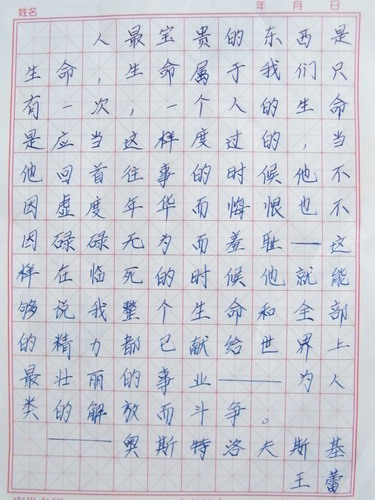 姓名 年 月 日
人最宝贵的东西是
生命，生命属于我们只
有一次，一个人的生命
是应当这样度过的，当
他回首往事的时候他不
因虚度年华而悔恨也不
因碌碌无为而羞耻——这
样在临死的时候他就能
够说我整个生命和全部
的精力都已献给世界上
最壮丽的事业——为人
类的解放而斗争。
——奥斯特洛夫斯基
王蕾